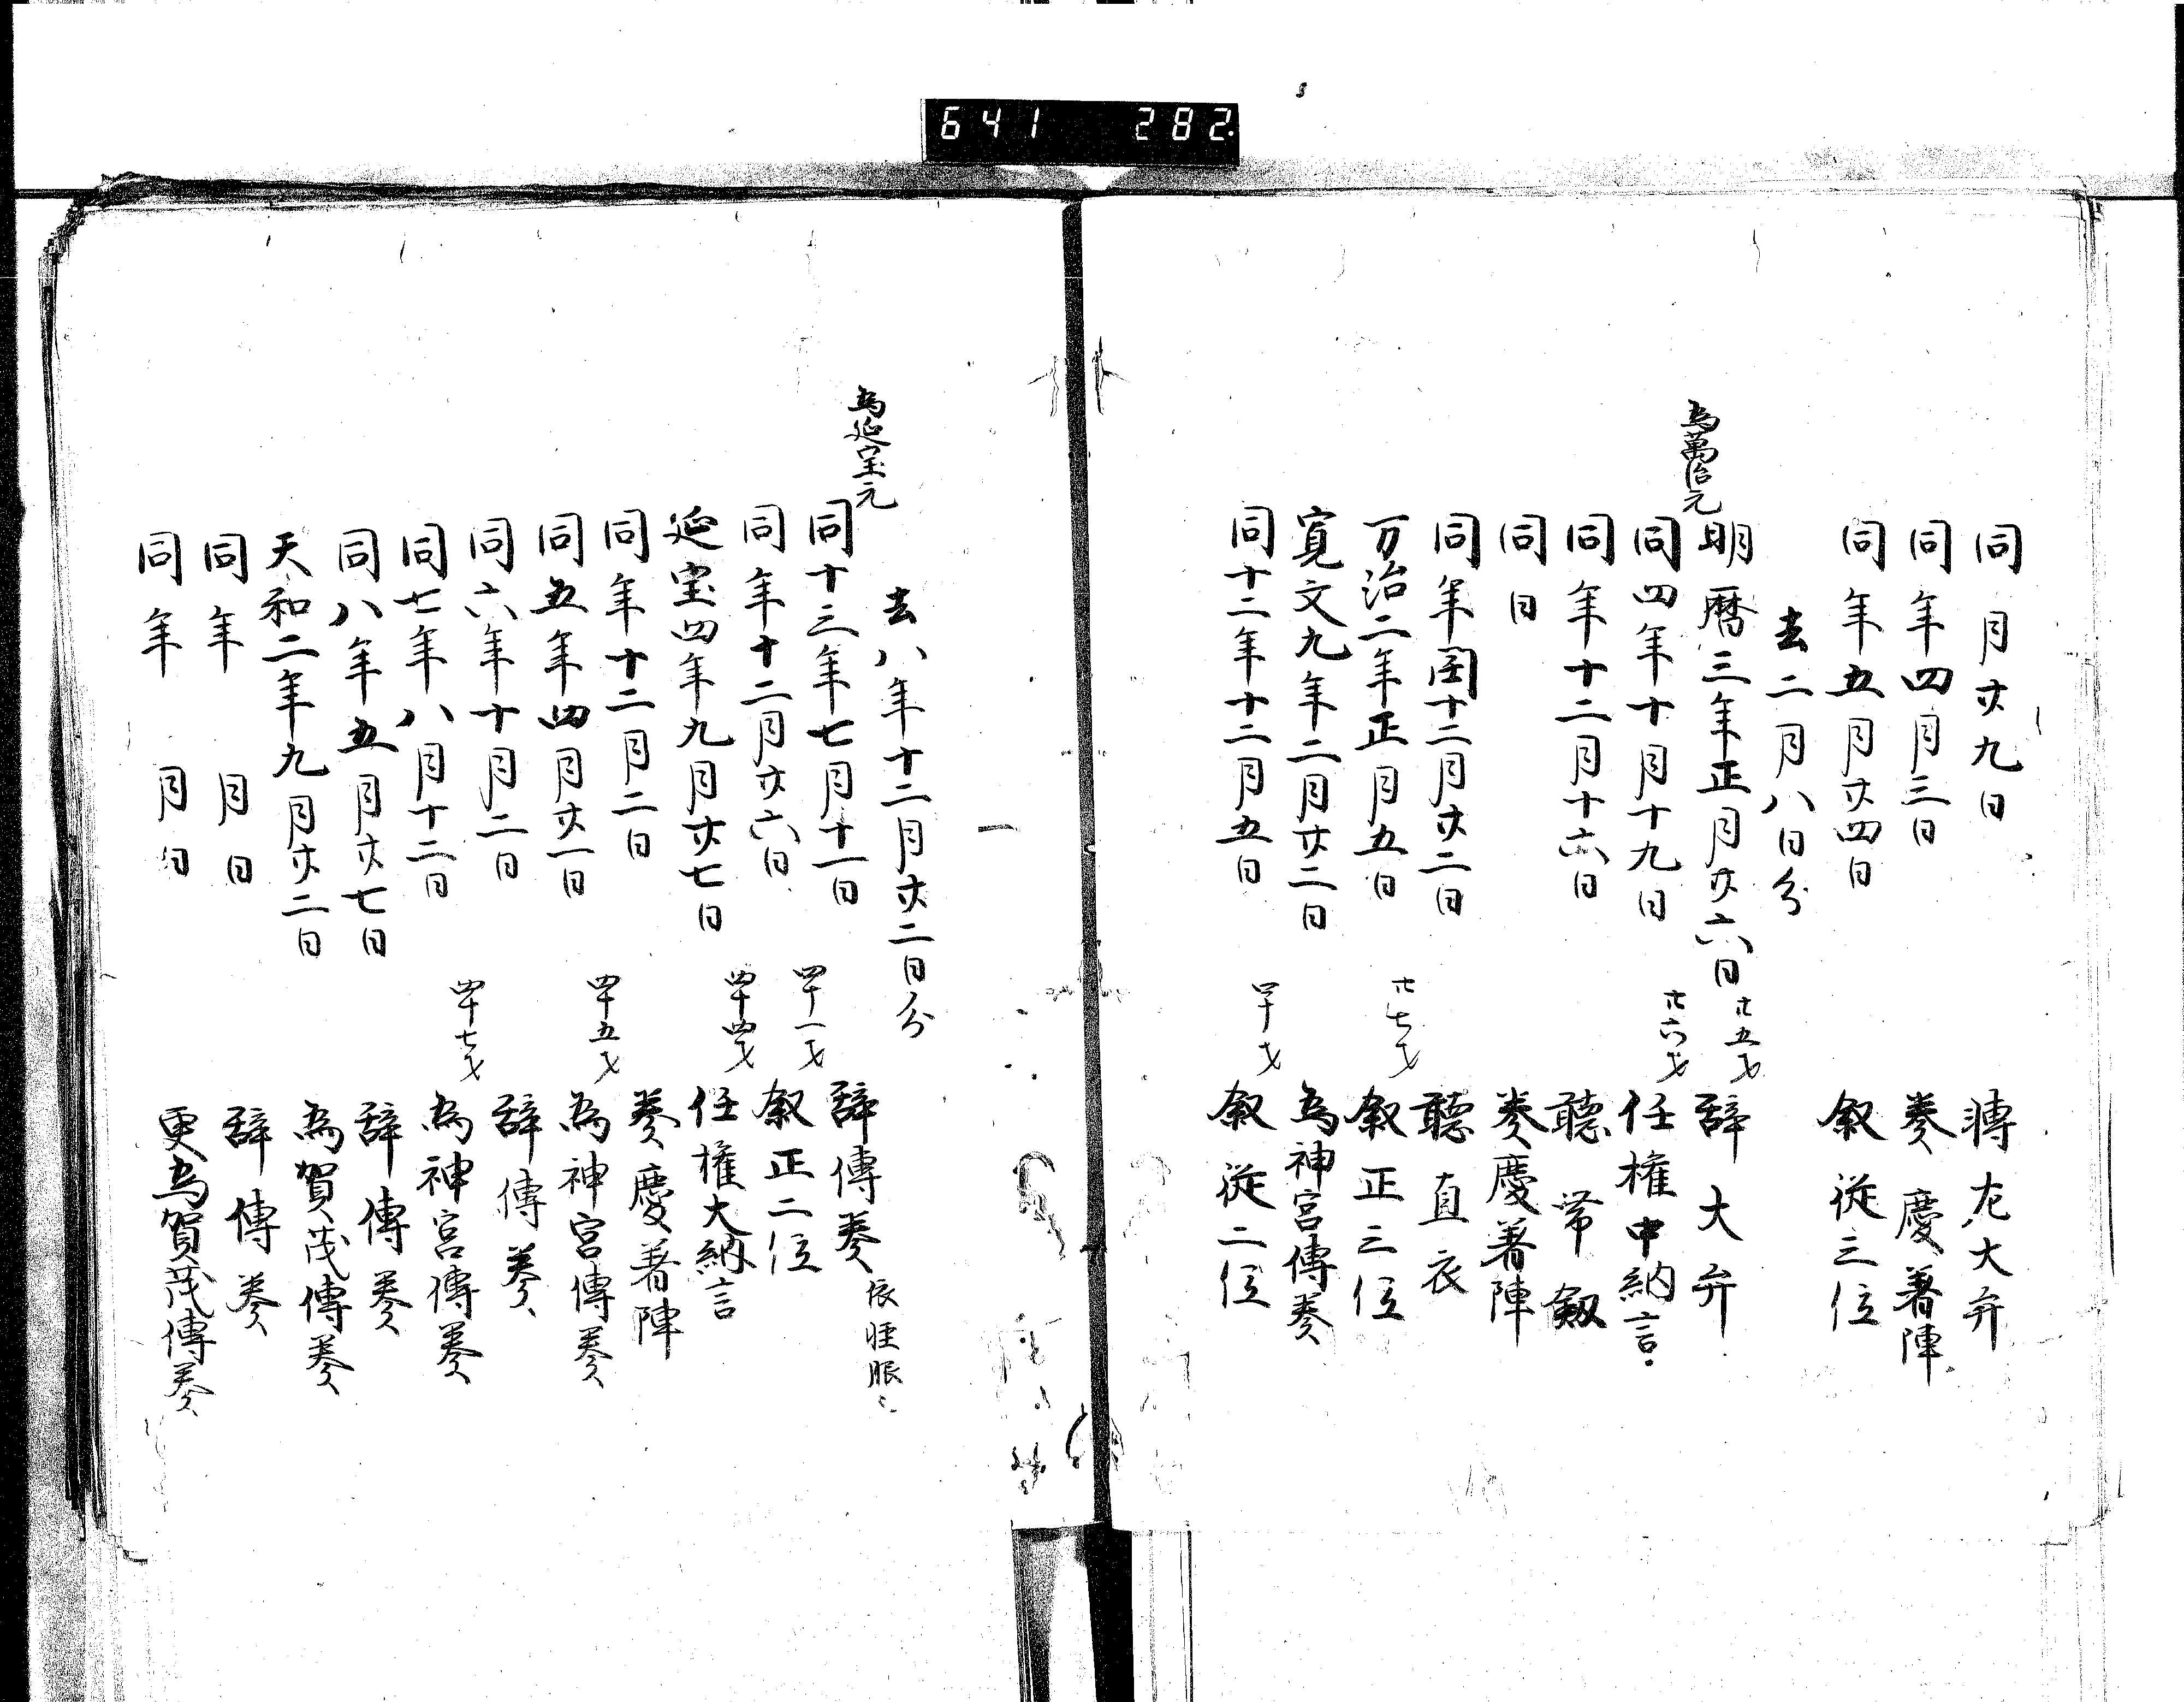 641 282
同月廿九日 轉左大弁
同年四月三日 奏慶著陣
同年五月廿四日 叙従三位
去二月八日分
明暦三年正月廿六日 廿五才 辞大弁
為萬治元
同四年十月十九日 廿六才 任権中納言
同年十二月十六日 聴帯劔
同日 奏慶著陣
同年閏十二月廿二日 聴直衣
万治二年正月五日 廿七才 叙正三位
寛文九年二月廿二日 為神宮傳奏
同十二年十二月五日 四十才 叙従二位
去八年十二月廿二日分
為延宝元
同十三年七月十一日 辞傳奏
同年十二月廿六日 四十一才 叙正二位
延宝四年九月廿七日 四十四才 任権大納言
同年十二月二日 奏慶著陣
同五年四月廿一日 四十五才 為神宮傳奏
同六年十月二日 辞傳奏
同七年八月十二日 四十七才 為神宮傳奏
同八年五月廿七日 辞傳奏
天和二年九月廿二日 為賀茂傳奏
同年 月 日 辞傳奏
同年 月 日 更為賀茂傳奏